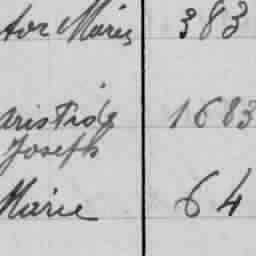 tor Marie 383
aristide 1683
Joseph
Marie 64